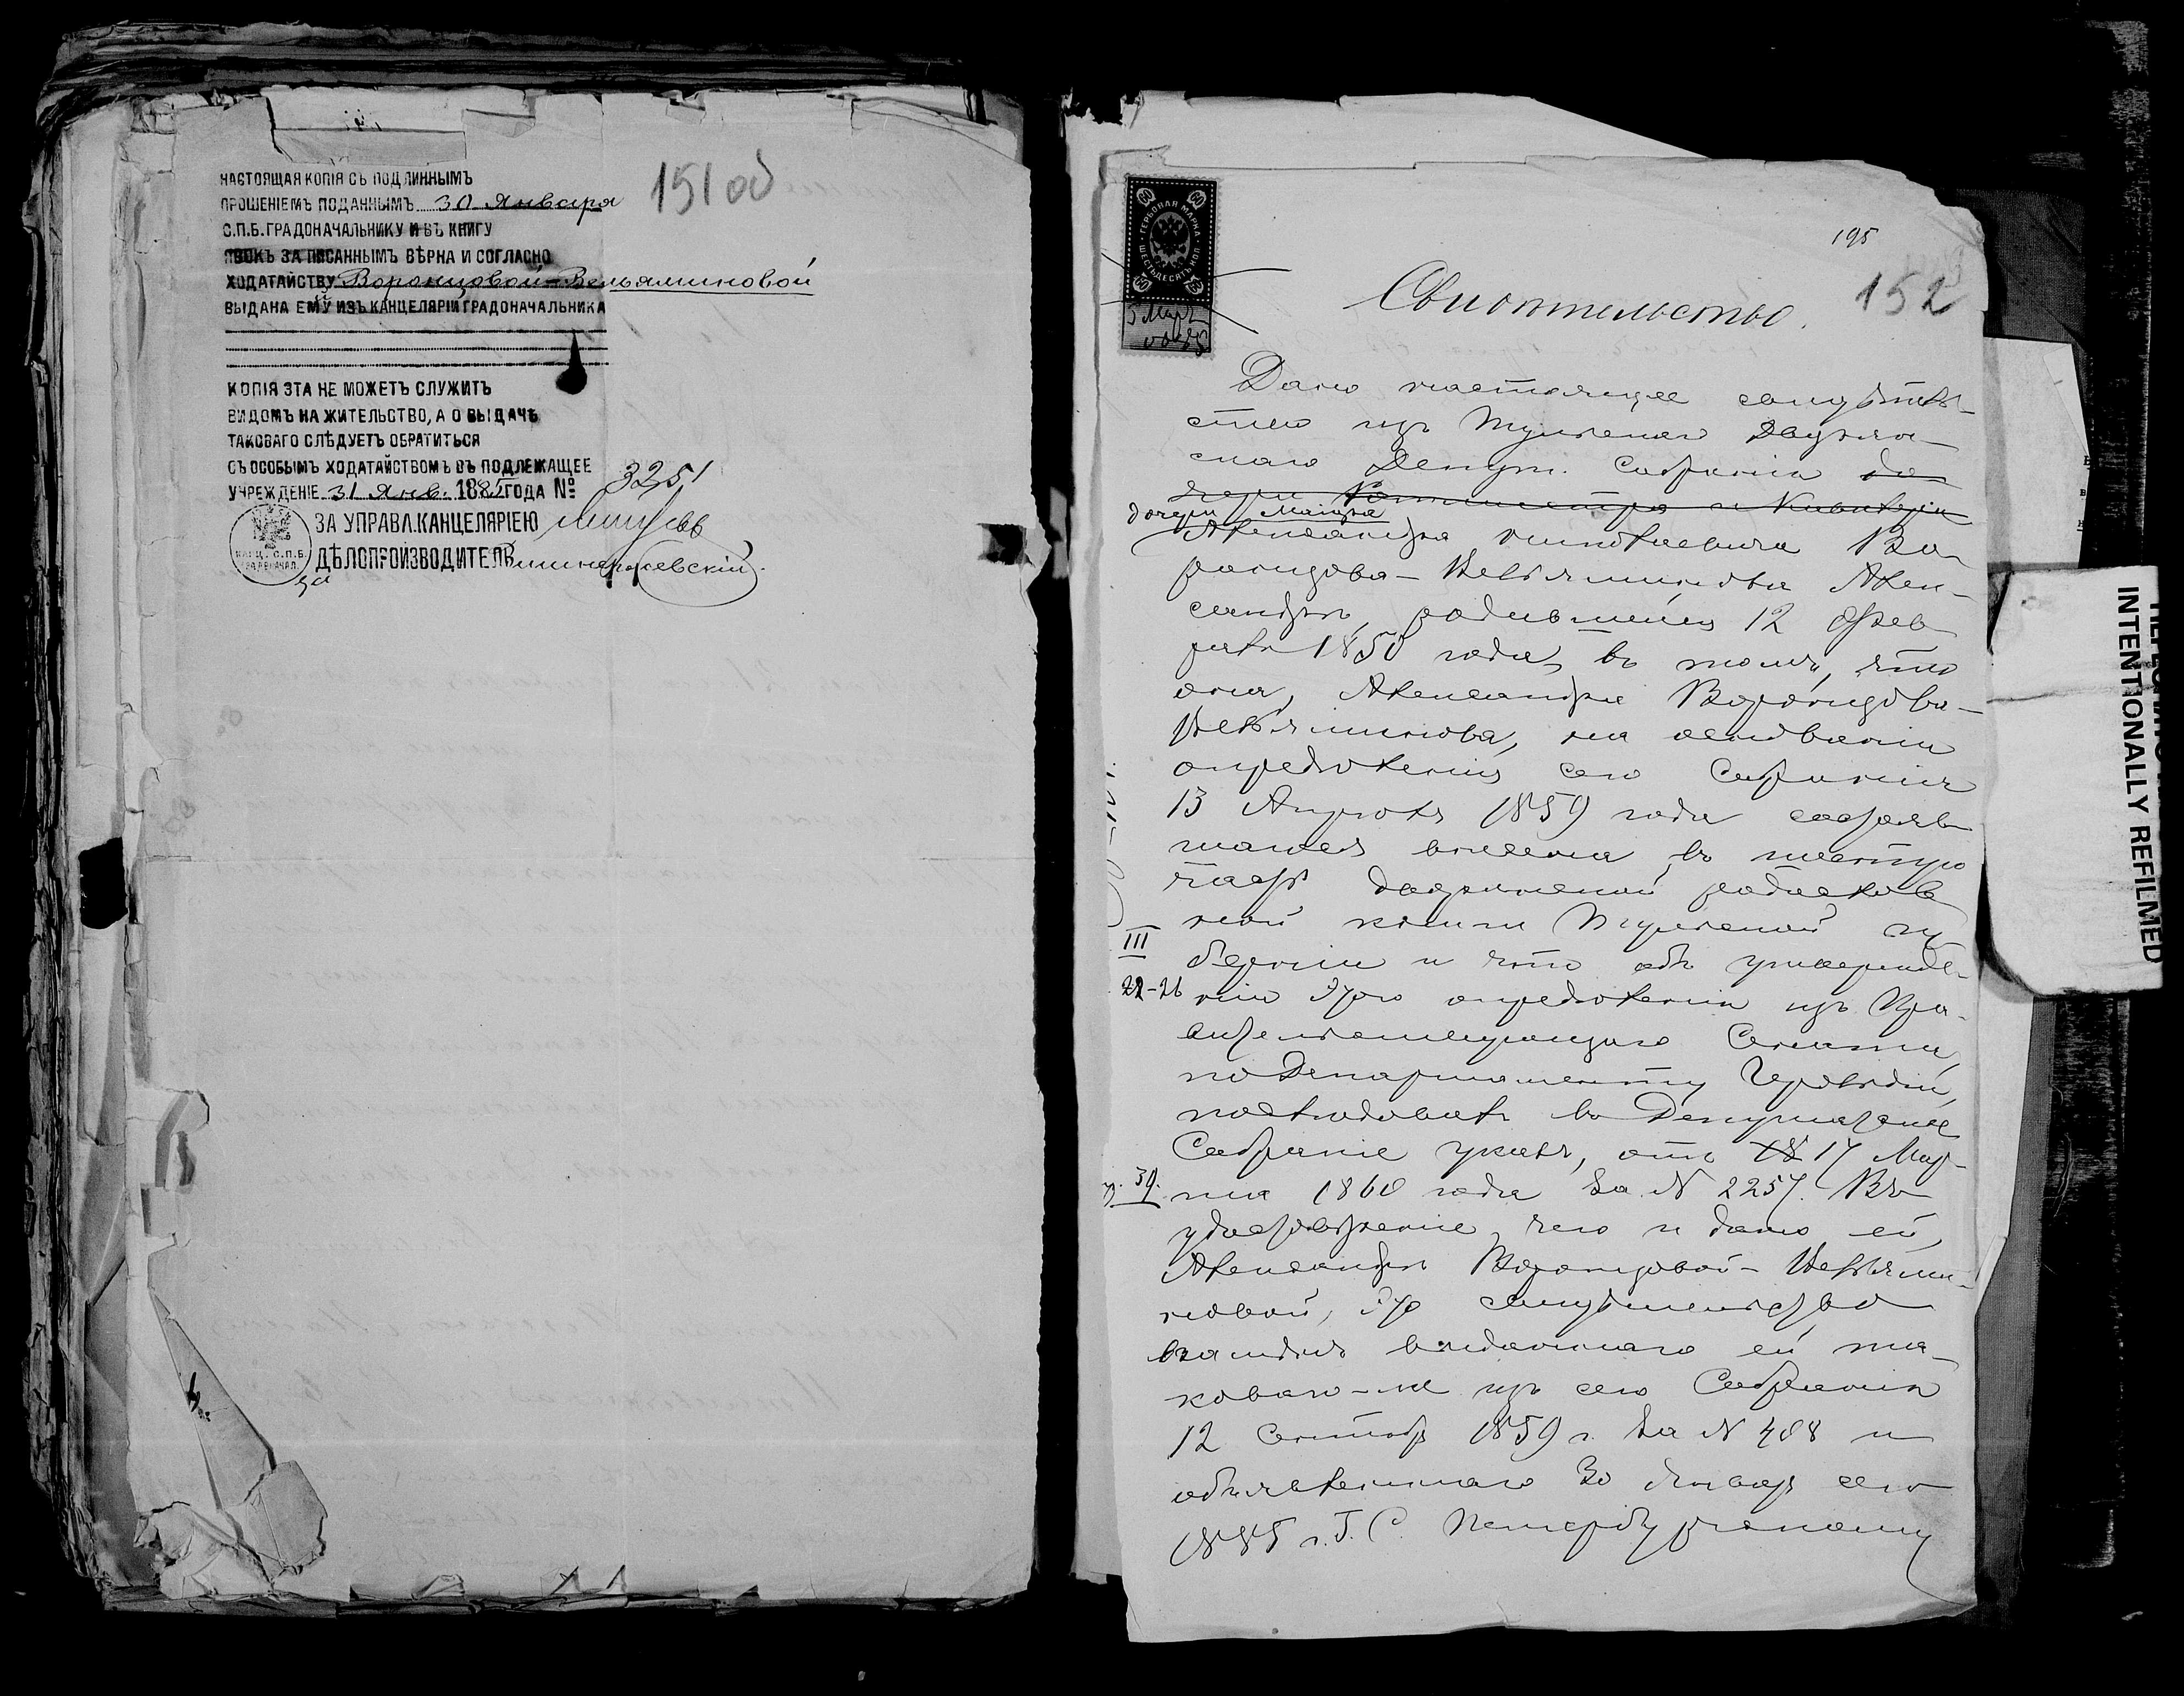 НАСТОЯЩАЯ КОПІЯ СЪ ПОДЛИННЫМЪ
ПРОШЕНІЕМЪ ПОДАННЫМЪ 30 Января
С.П.Б. ГРАДОНАЧАЛЬНИКУ И ВЪ КНИГУ
ЯВОКЪ ЗАПИСАННЫМЪ ВѢРНА И СОГЛАСНО
ХОДАТАЙСТВУ Воронцовой-Вельяминовой
ВЫДАНА ЕЙ ИЗЪ КАНЦЕЛЯРІИ ГРАДОНАЧАЛЬНИКА
КОПІЯ ЭТА НЕ МОЖЕТЪ СЛУЖИТЬ
ВИДОМЪ НА ЖИТЕЛЬСТВО, А О ВЫДАЧѢ
ТАКОВАГО СЛѢДУЕТЪ ОБРАТИТЬСЯ
СЪ ОСОБЫМЪ ХОДАТАЙСТВОМЪ ВЪ ПОДЛЕЖАЩЕЕ
УЧРЕЖДЕНІЕ 31 Янв. 1885 ГОДА № 3251
ЗА УПРАВЛ. КАНЦЕЛЯРІЕЮ
ДѢЛОПРОИЗВОДИТЕЛЬ
за
КАНЦ. С.П.Б.
ГРАДОНАЧАЛ.
151 об
60 60
ГЕРБОВАЯ МАРКА
ШЕСТЬДЕСЯТЪ КОП.
60 60
5 Мар
1885
195
152
Свидѣтельство.
Дано настоящее свидѣтель-
ство изъ Тульскаго Дворян-
скаго Депут. Собранія до
чери
дочери Маіора
Александра Николаевича Во-
ронцова-Вельяминова Алек-
сандрѣ, родившейся 12 Фев
раля 1850 года, въ томъ, что
она, Александра Воронцова-
Вельяминова, на основаніи
опредѣленія сего Собранія
13 Апрѣля 1859 года состояв
шагося внесена въ шестую
часть дворянской родослов
ной книги Тульской гу
берніи и что объ утвержде-
ніи этого опредѣленія изъ Пра-
вительствующаго Сената,
по Департаменту Герольдіи,
послѣдовалъ въ Депутатское
Собраніе указъ, отъ 18 17 Мар-
та 1860 года за № 2257. Въ
удостовѣреніе чего и дано ей,
Александрѣ Воронцовой-Вельями-
новой, это свидѣтельство
взамѣнъ выданнаго ей та-
коваго-же изъ сего Собранія
12 Сентяб 1859 г. за № 408 и
объявленнаго 30 Январ сего
1885 г. Г. С. Петербургскому
III
22-26
39.
INTENTIONALLY REFILMED